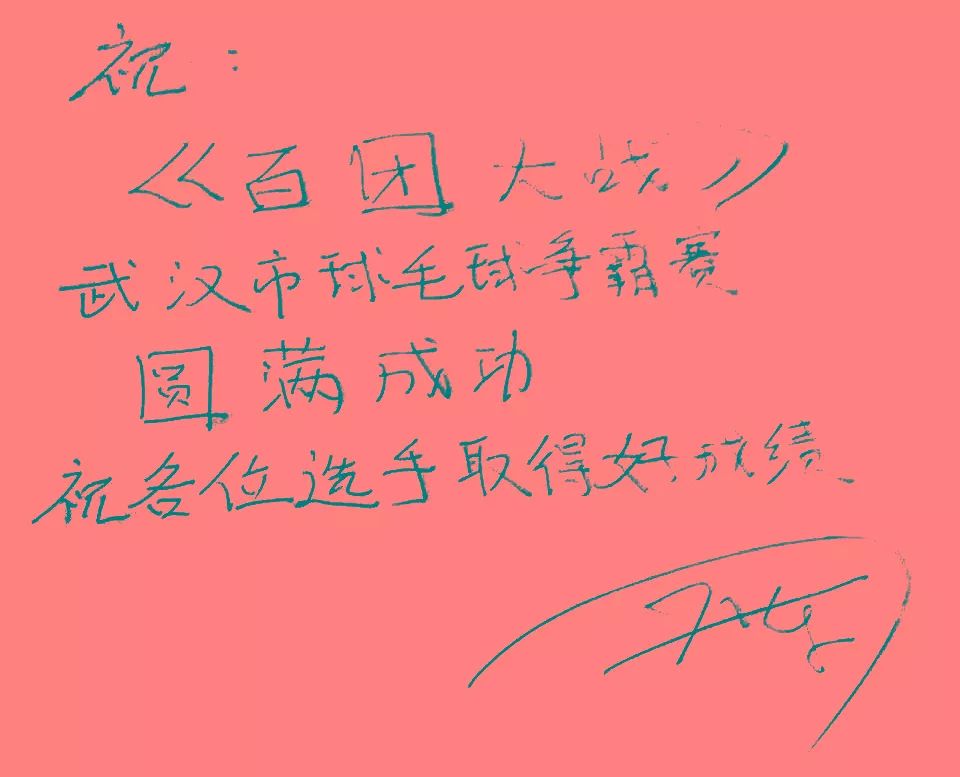 祝：
《百团大战》
武汉市球毛球争霸赛
圆满成功
祝各位选手取得好成绩